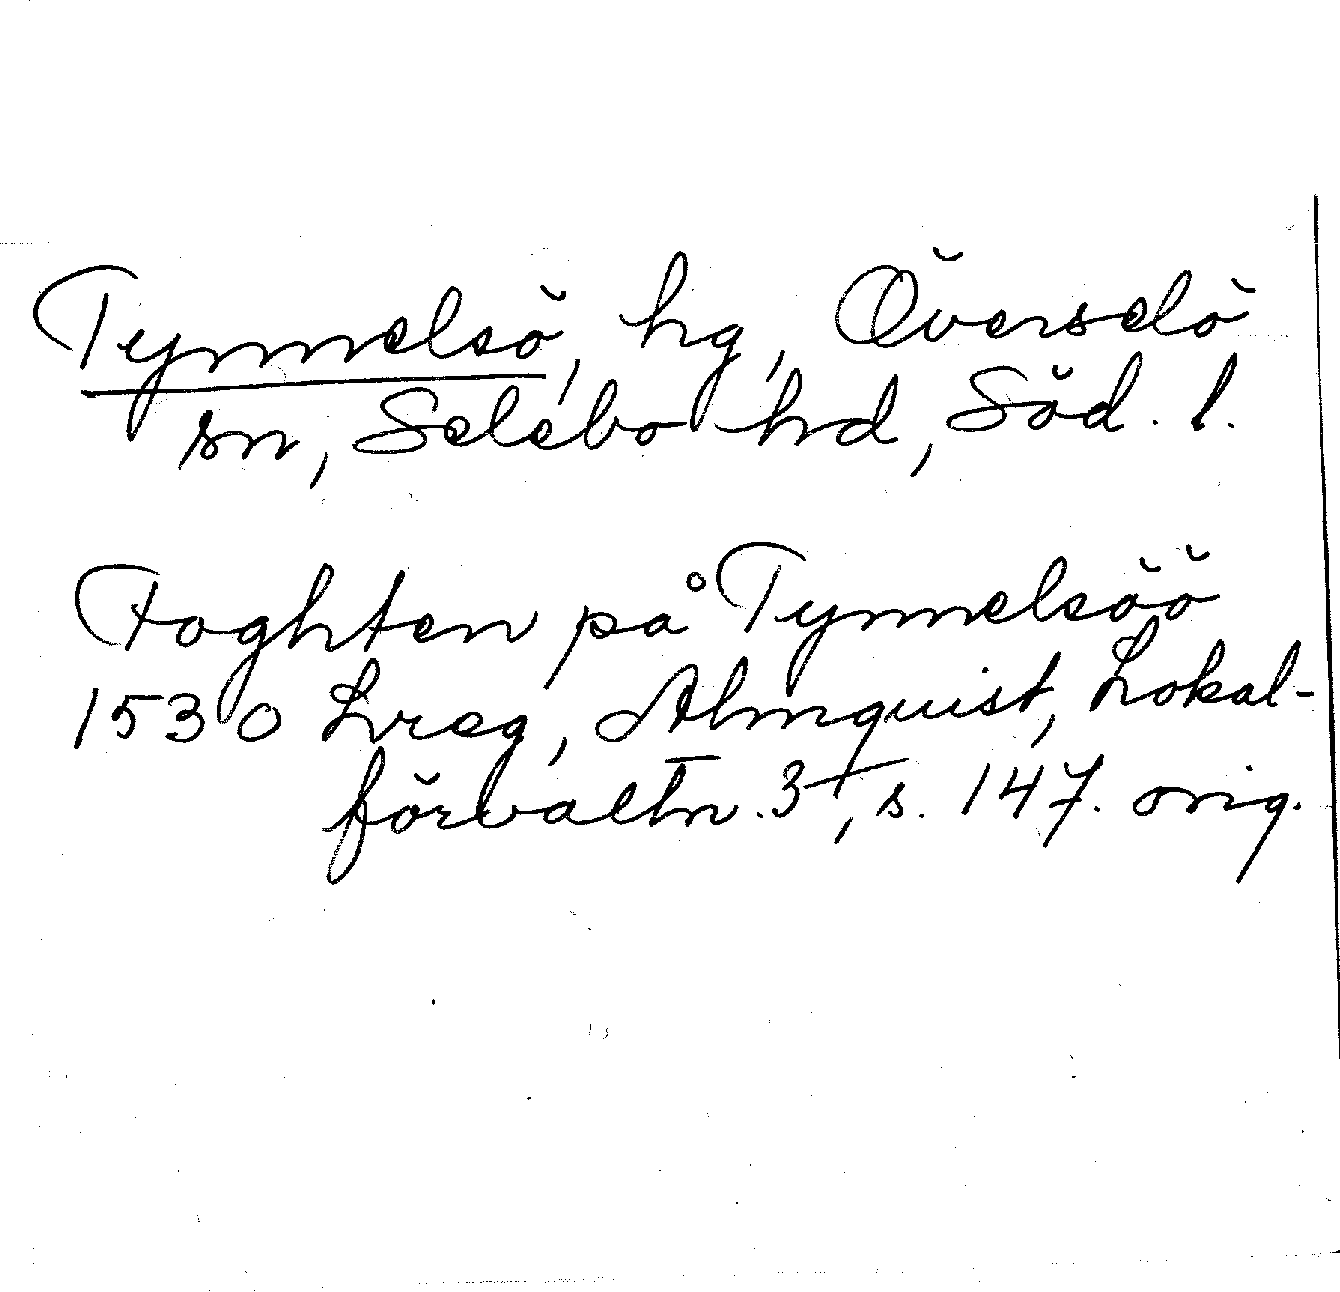 Tynnelsö, hg, Överselö
sn, Selebo hd, Söd. l.
Foghten på Tynnelsöö
1530 Lreg, Almquist, Lokal-
förvaltn. 3, s. 147. orig.